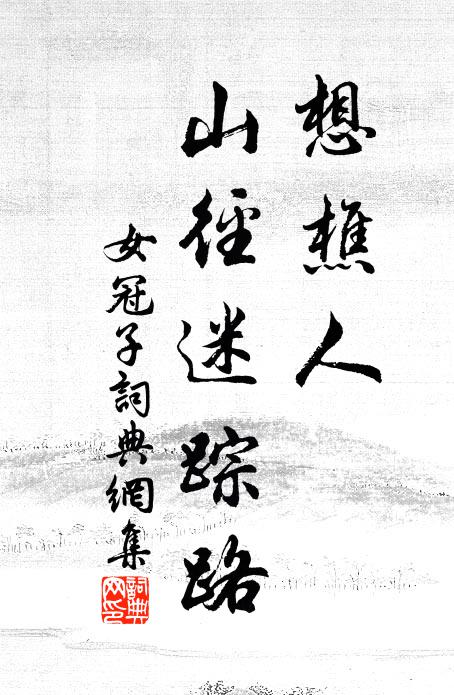 想樵人
山徑迷踪路
女冠子詞典網集
詞典
网印